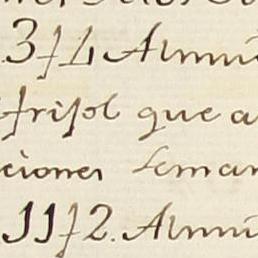 3ƒ4 Almu
frisol que a
ciones seman
11ƒ2. Almu